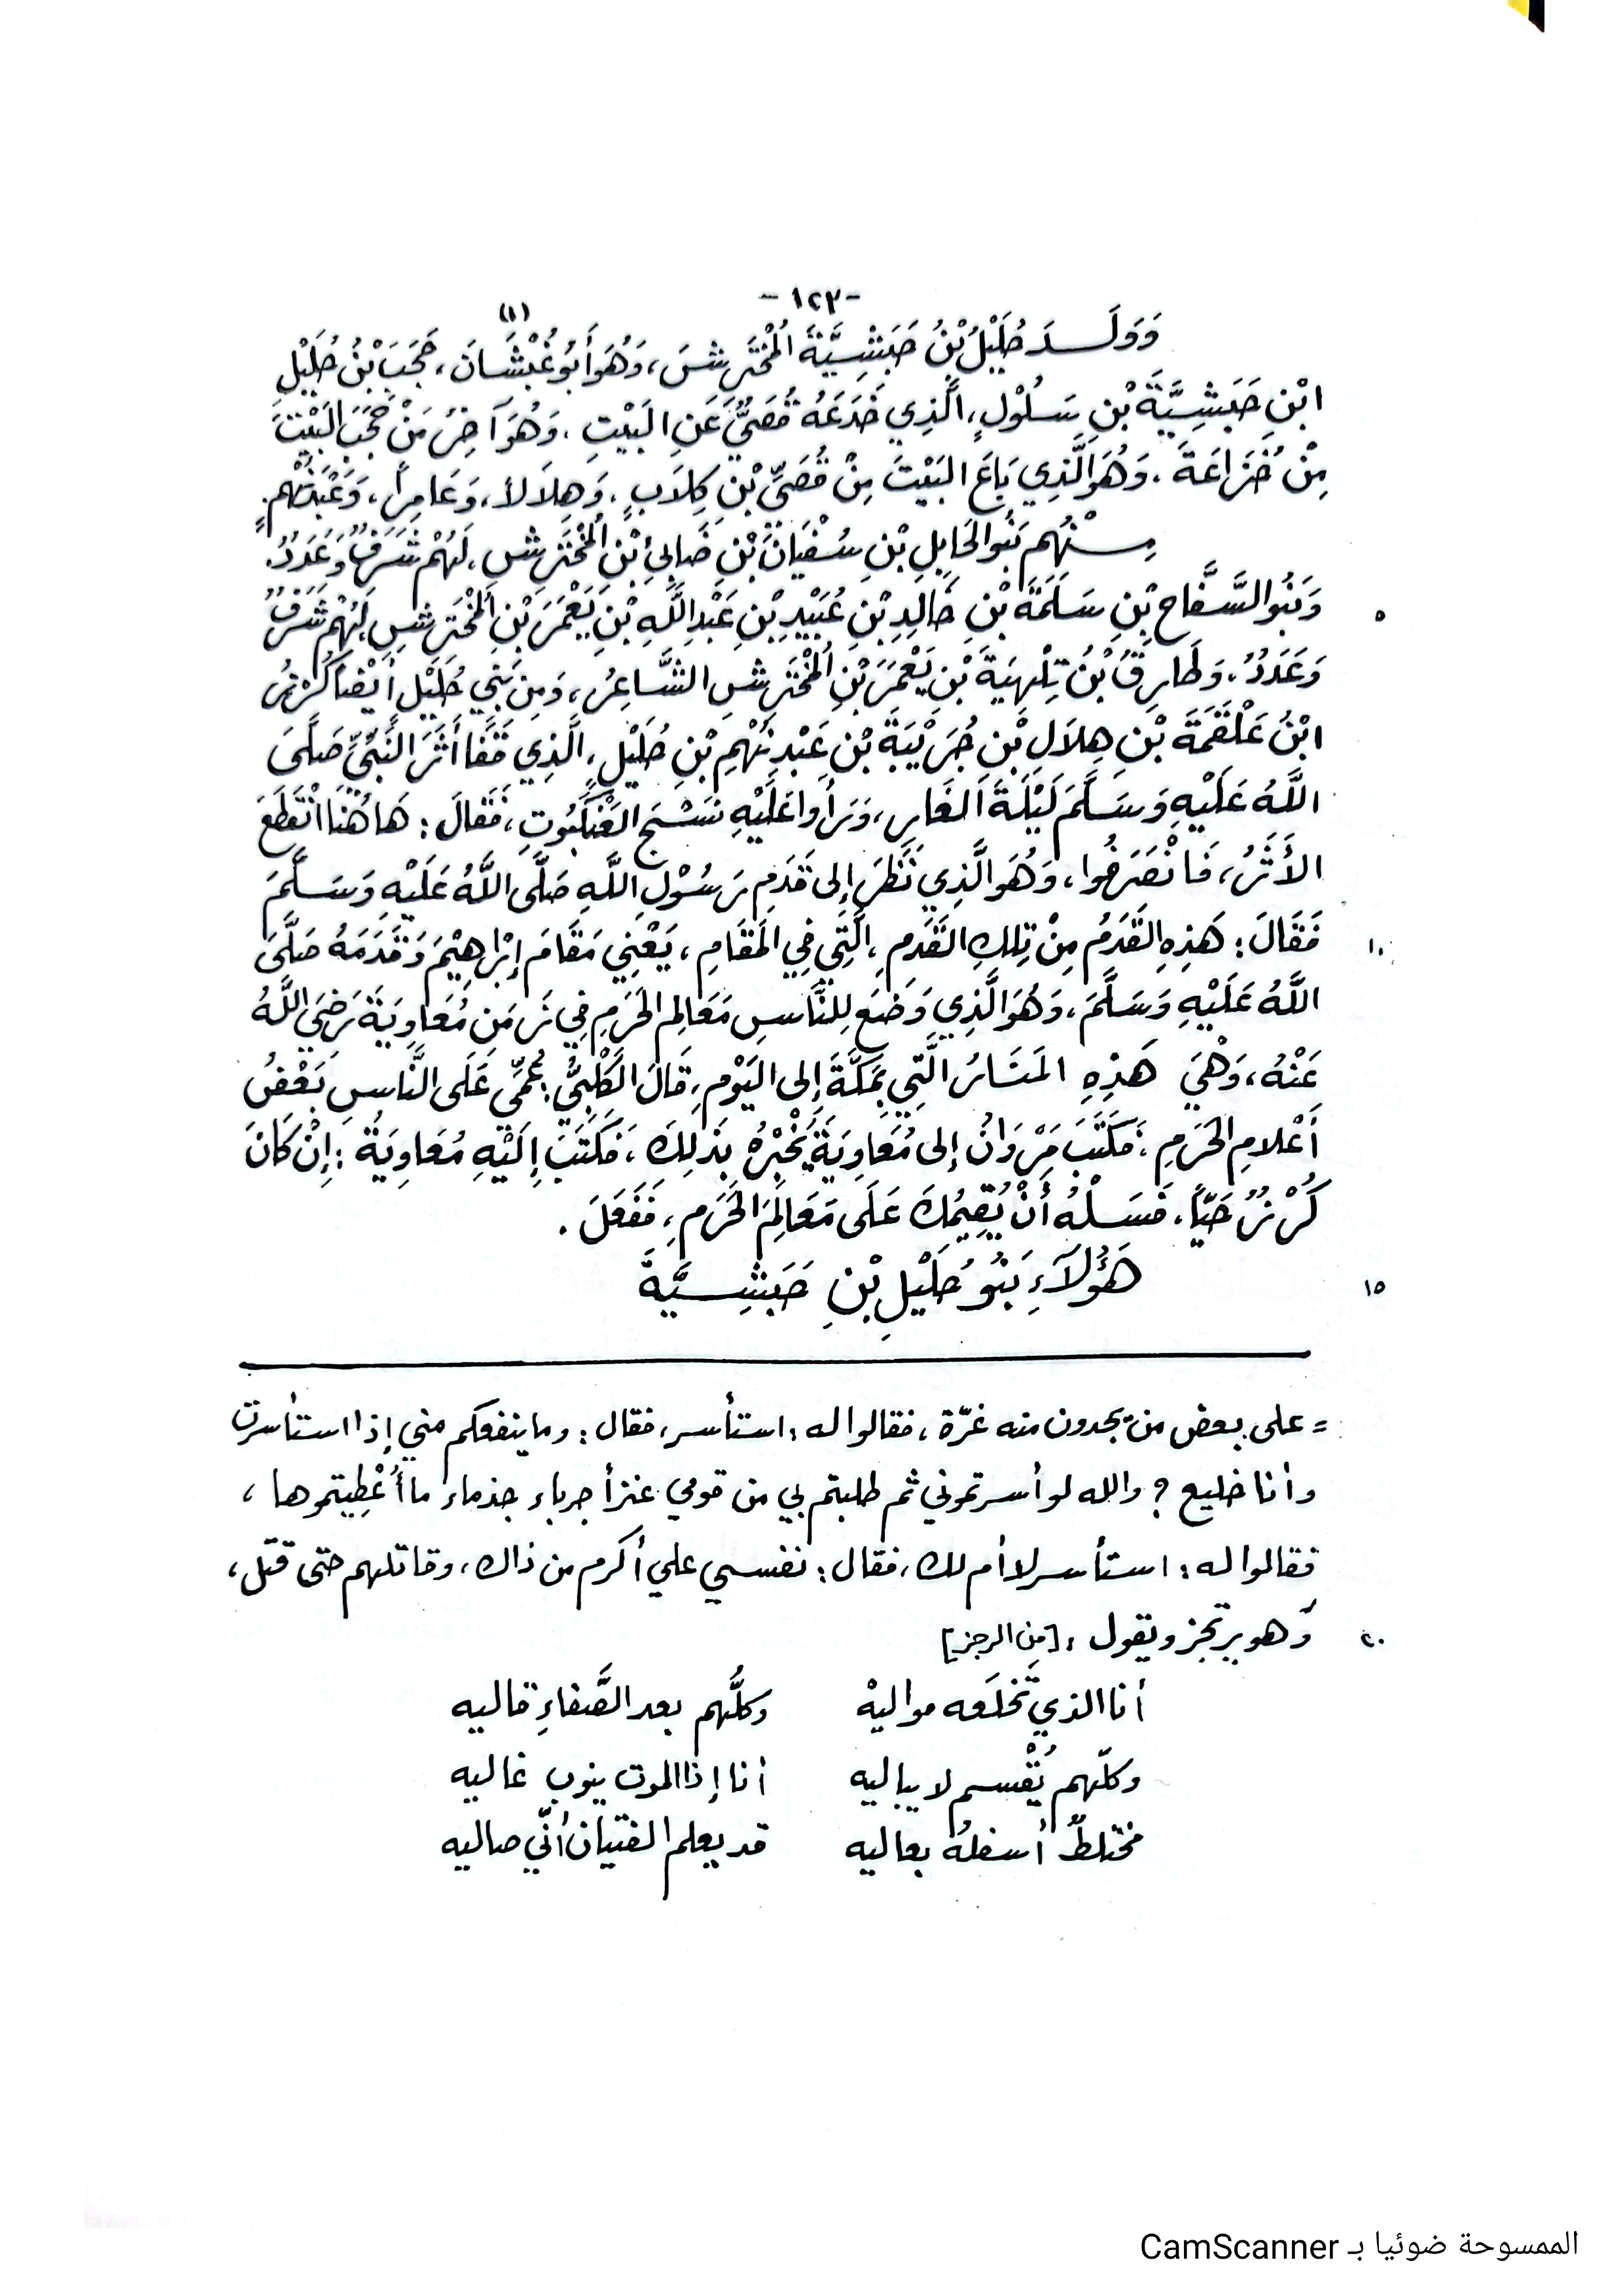 -١٢٣-
وَوَلَـدَ حُلَيْلُ بْنُ حَبَشِيَّةَ الْمُحْتَرِشَ، وَهُوَ أَبُو غُبْشَانَ(١)، حَجَبَ بْنُ حُلَيْلِ
ابْنِ حَبَشِيَّةَ بْنِ سَلُوْلٍ، الَّذِي خَدَعَهُ قُصَيٌّ عَنِ البَيْتِ، وَهُوَ آخِرُ مَنْ حَجَبَ البَيْتَ
مِنْ خُزَاعَةَ. وَهُوَ الَّذِي بَاعَ البَيْتَ مِنْ قُصَيِّ بْنِ كِلَابٍ، وَهِلَالاً، وَعَامِراً، وَعَبْدَنُهْمٍ.
مِـنْهُم بَنُو الحَابِلِ بْنِ سُفْيَانَ بْنِ ضَابِئِ بْنِ الْمُحْتَرِشِ، لَهُمْ شَرَفٌ وَعَدَدٌ.
٥ وَبَنُو السَّفَّاحِ بْنِ سَلَمَةَ بْنِ خَالِدِ بْنِ عُبَيْدِ بْنِ عَبْدِ اللَّهِ بْنِ يَعْمَرَ بْنِ الْمُحْتَرِشِ، لَهُمْ شَرَفٌ
وَعَدَدٌ، وَطَارِقُ بْنُ تِلْهِيَةَ بْنِ يَعْمَرَ بْنِ الْمُحْتَرِشِ الشَّاعِرُ، وَمِنْ بَنِي حُلَيْلٍ أَيْضاً كُرْزُ
ابْنُ عَلْقَمَةَ بْنِ هِلَالِ بْنِ جُرَيْبَةَ بْنِ عَبْدِ نُهْمِ بْنِ حُلَيْلٍ، الَّذِي قَفَا أَثَرَ النَّبِيِّ صَلَّى
اللَّهُ عَلَيْهِ وَسَلَّمَ لَيْلَةَ الغَارِ، وَرَأَوا عَلَيْهِ نَسْجَ العَنْكَبُوتِ، فَقَالَ: هَاهُنَا انْقَطَعَ
الأَثَرُ، فَانْصَرَفُوا، وَهُوَ الَّذِي نَظَرَ إِلى قَدَمِ رَسُوْلِ اللَّهِ صَلَّى اللَّهُ عَلَيْهِ وَسَلَّمَ
١٠ فَقَالَ: هَذِهِ القَدَمُ مِنْ تِلكِ القَدَمِ، الَّتِي فِي المَقَامِ، يَعْنِي مَقَامَ إِبْرَاهِيْمَ وَقَدَمَهُ صَلَّى
اللَّهُ عَلَيْهِ وَسَلَّمَ، وَهُوَ الَّذِي وَضَعَ لِلنَّاسِ مَعَالِمَ الحَرَمِ فِي زَمَنِ مُعَاوِيَةَ رَضِيَ اللَّهُ
عَنْهُ، وَهْيَ هَذِهِ المَنَارُ الَّتِي بِمَكَّةَ إِلى اليَوْمِ، قَالَ الكَلْبِيُّ: عُمِّي عَلَى النَّاسِ بَعْضُ
أَعْلامِ الحَرَمِ، فَكَتَبَ مَرْوَانُ إِلى مُعَاوِيَةَ يُخْبِرُهُ بِذَلِكَ، فَكَتَبَ إِلَيْهِ مُعَاوِيَةُ: إِنْ كَانَ
كُرْزٌ حَيّاً، فَسَلْهُ أَنْ يُقِيمَكَ عَلَى مَعَالِمَ الحَرَمِ، فَفَعَلَ.
١٥ هَؤُلَاءِ بَنُو حُلَيْلِ بْنِ حَبَشِـيَّةَ
= على بعض من يجدون منه غرّة، فقالوا له: استأسر، فقال: وما ينفعكم مني إذا استأسرت
وأنا خليع؟ والله لو أسرتموني ثم طلبتم بي من قومي عنزاً جرباء جذماء ما أُعْطِيتموها،
فقالوا له: استأسر لا أم لك، فقال: نفسي علي أكرم من ذاك، وقاتلهم حتى قتل،
٢٠ وهو يرتجز ويقول: [من الرجز]
أنا الذي تَخلَعه مواليهْ وكلُّهم بعد الصَّفاءِ قاليه
وكلّهم يُقْسم لا يباليه أنا إذا الموت ينوب غاليه
مختلطٌ أسفلهُ بعاليه قد يعلم الفتيان أنّي صاليه
الممسوحة ضوئيا بـ CamScanner